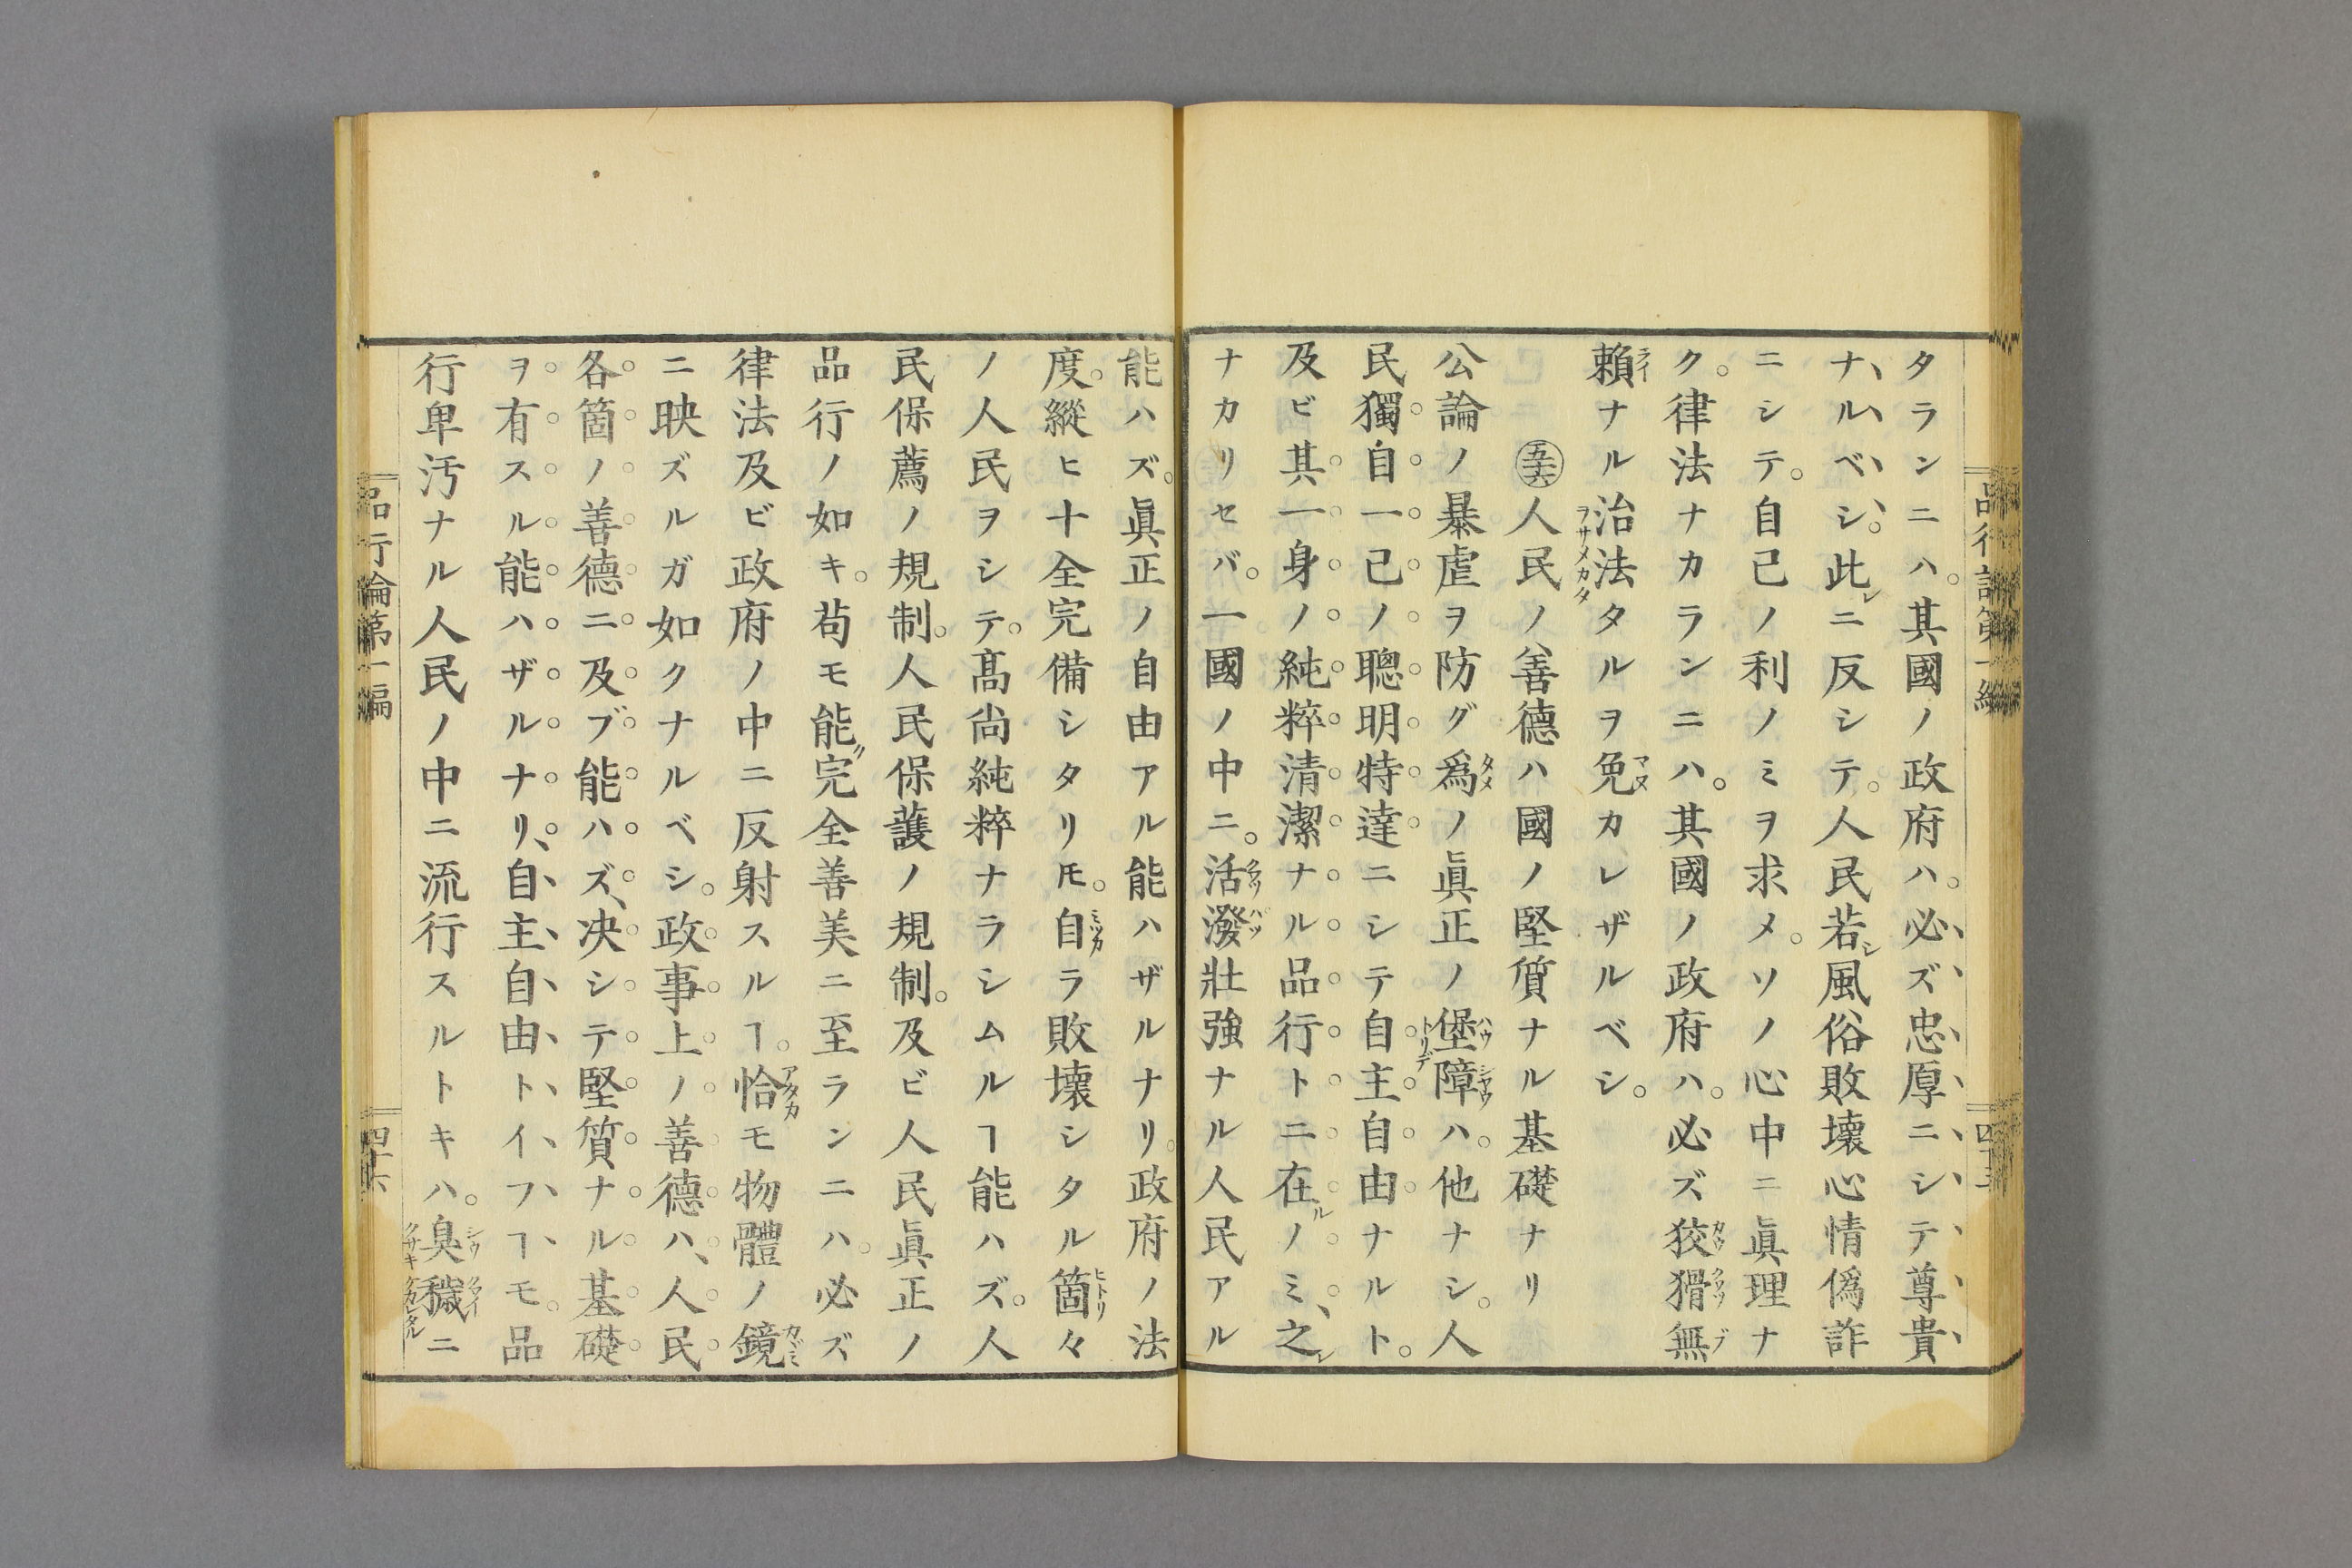 タランニハ。其國ノ政府ハ。必ズ忠厚ニシテ尊貴
ナルベシ。此レニ反シテ。人民若シ風俗敗壞心情僞詐
ニシテ。自己ノ利ノミヲ求メ。ソノ心中ニ眞理ナ
ク。律法ナカランニハ。其國ノ政府ハ。必ズ狡猾無
賴ナル治法タルヲ免カレザルベシ。
㊄㊅人民ノ善德ハ國ノ堅質ナル基礎ナリ
公論ノ暴虐ヲ防グ爲ノ眞正ノ堡障ハ。他ナシ。人
民獨自一己ノ聰明特達ニシテ自主自由ナルト。
及ビ其一身ノ純粹清潔ナル品行トニ在ルノミ、之レ
ナカリセバ。一國ノ中ニ。活潑壯強ナル人民アル
能ハズ。眞正ノ自由アル能ハザルナリ。政府ノ法
度。縱ヒ十全完備シタリ𪜈。自ラ敗壞シタル箇々
ノ人民ヲシテ。髙尚純粹ナラシムルヿ能ハズ。人
民保薦ノ規制。人民保護ノ規制。及ビ人民眞正ノ
品行ノ如キ。苟モ能ク完全善美ニ至ランニハ。必ズ
律法及ビ政府ノ中ニ反射スルヿ。恰モ物體ノ鏡
ニ映ズルガ如クナルベシ。政事上ノ善德ハ、人民
各箇ノ善德ニ及ブ能ハズ、决シテ堅質ナル基礎
ヲ有スル能ハザルナリ、自主自由トイフヿモ。品
行卑汚ナル人民ノ中ニ流行スルトキハ。臭穢ニ
品行論第一編
四十六